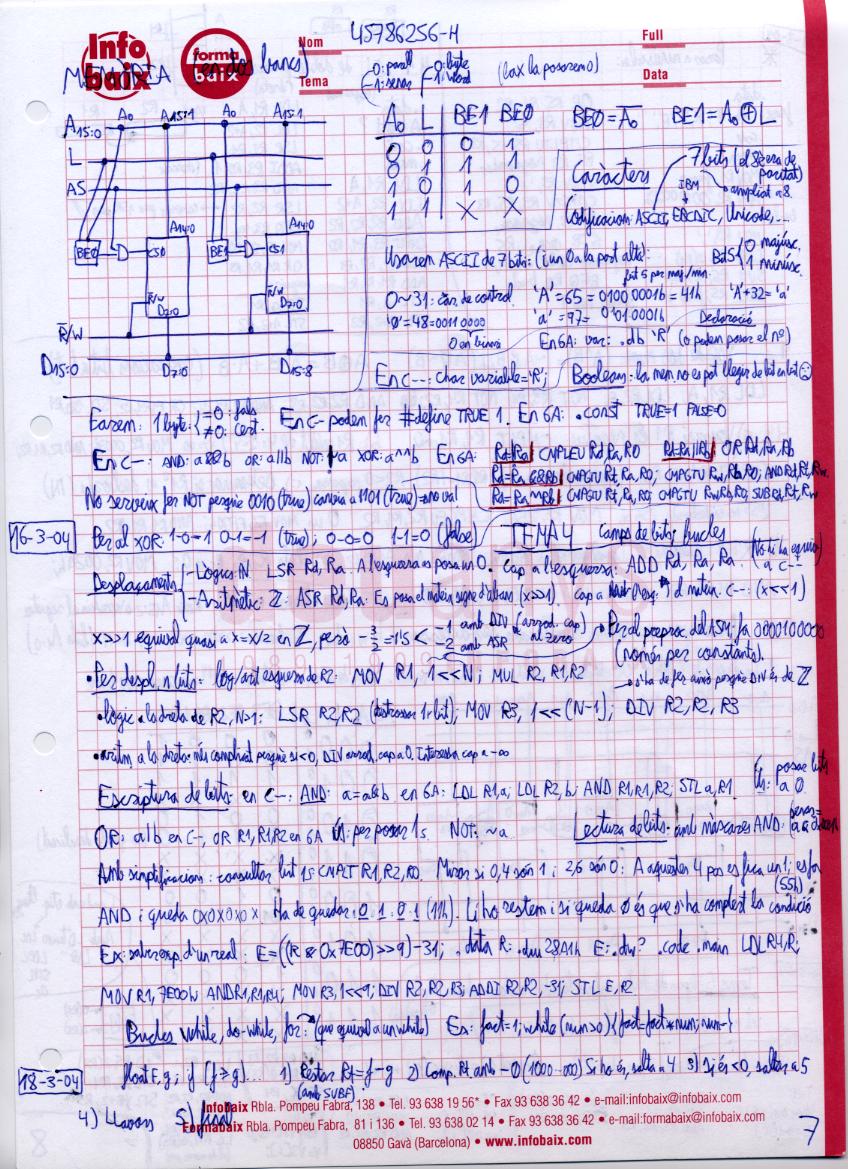 Info baix
forma baix
Nom 45786256-H Full
Tema Data
MEMÒRIA (en dos bancs)
0: parell 1: senar 0: byte 1: word (Lax la posarem 0)
A15:0 A0 A15:1 A0 A15:1
L
AS
A14:0 A14:0
BE0 CS0 BE1 CS1
R/W R/W
D7:0 D7:0
R/W
D15:0 D7:0 D15:8
A0 L BE1 BE0
0 0 0 1
0 1 1 1
1 0 1 0
1 1 X X
BE0 = A̅0 BE1 = A0⊕L
Caràcters 7 bits (el 8è era de paritat)
IBM ampliat a 8
Codificacions: ASCII, EBCDIC, Unicode,...
Usarem ASCII de 7 bits: (i un 0 a la part alta): Bit5 0 majúsc. 1 minúsc.
bit 5 per maj/min.
0~31: car. de control. 'A'=65=01000001b=41h 'A'+32='a'
'0'=48=00110000 'a'=97=01100001b Declaració
0 en binari En 6A: var: .db 'R' (o podem posar el nº)
En C--: char variable='R'; Booleans: la mem. no es pot llegir de bit en bit ☹
Farem: 1 byte: =0: fals ≠0: cert. En C-- podem fer #define TRUE 1. En 6A: .const TRUE=1 FALSE=0
En C--: AND: a&&b OR: a||b NOT: !a XOR: a^^b En 6A: Rd=!Ra CMPLEU Rd,Ra,R0 Rd=Ra||Rb OR Rd,Ra,Rb
Rd=Ra&&Rb CMPGTU Rt,Ra,R0; CMPGTU Ru,Rb,R0; AND Rd,Rt,Ru
No serveix fer NOT perquè 0010 (true) canvia a 1101 (true) → no val Rd=Ra^^Rb CMPGTU Rt,Ra,R0; CMPGTU Ru,Rb,R0; SUB Rd,Rt,Ru
16-3-04 Per al XOR: 1-0=1 0-1=-1 (true); 0-0=0 1-1=0 (false) TEMA 4 Camps de bits; bucles
Desplaçaments -Lògics: N. LSR Rd, Ra. A l'esquerra es posa un 0. Cap a l'esquerra: ADD Rd, Ra, Ra. (No hi ha equiv. a C--)
-Aritmètic: Z: ASR Rd,Ra: Es posa el mateix signe d'abans (x>>1). cap a l'esq.: el mateix. C--: (x<<1)
x>>1 equival quasi a x=x/2 en Z, però -3/2=-1'5 < -1 amb DIV (arrod. cap al zero) -2 amb ASR Per al preproc. del ASM: fa 0000100000
(només per constants).
•Per despl. n bits: lòg/arit esquerra de R2: MOV R1, 1<<N; MUL R2, R1, R2 → s'ha de fer això perquè DIV és de Z
•lògic a la dreta de R2, N>1: LSR R2,R2 (destrossar 1r bit); MOV R3, 1<<(N-1); DIV R2, R2, R3
•aritm. a la dreta: més complicat perquè si <0, DIV arrod. cap a 0. Interessa cap a -∞
Escriptura de bits: en C--: AND: a=a&b en 6A: LDL R1,a; LDL R2,b; AND R1,R1,R2; STL a,R1 És: posar bits a 0
OR: a|b en C--, OR R1,R1,R2 en 6A És: per posar 1s. NOT: ~a Lectura de bits: amb màscares AND:
Amb simplificacions: consultar bit 15 CMPLT R1,R2,R0. Mirar si 0,4 són 1 i 2,6 són 0: A aquestes 4 pos es fica un 1; es fa (55h)
AND i queda 0X0X0X0X. Ha de quedar .0.1.0.1 (11h). Li ho restem i si queda 0 és que s'ha complert la condició
Ex: saber exp. d'un real: E=((R & 0x7E00)>>9)-31; .data R: .dw 28A1h E: .dw? .code .main LDL R4,R;
MOV R1, 7E00h AND R1,R1,R4; MOV R3,1<<9; DIV R2,R2,R3 ADDI R2,R2,-31; STL E,R2
Bucles while, do-while, for: (que equival a un while) Ex: fact=1; while (num>0){fact=fact*num; num--}
18-3-04 float f,g; if (f≥g)... 1) Restar Rt=f-g (amb SUBF) 2) Comp. Rt amb -0 (1000...000) Si ho és, salta a 4 3) Si és <0, saltar a 5
4) Llavors 5) final
Infobaix Rbla. Pompeu Fabra, 138 • Tel. 93 638 19 56* • Fax 93 638 36 42 • e-mail:infobaix@infobaix.com
Formabaix Rbla. Pompeu Fabra, 81 i 136 • Tel. 93 638 02 14 • Fax 93 638 36 42 • e-mail:formabaix@infobaix.com
08850 Gavà (Barcelona) • www.infobaix.com
7